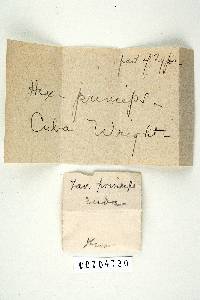 part of Type.
Hex. princeps.
Cuba Wright.
Fav. princeps
Cuba.
00204720